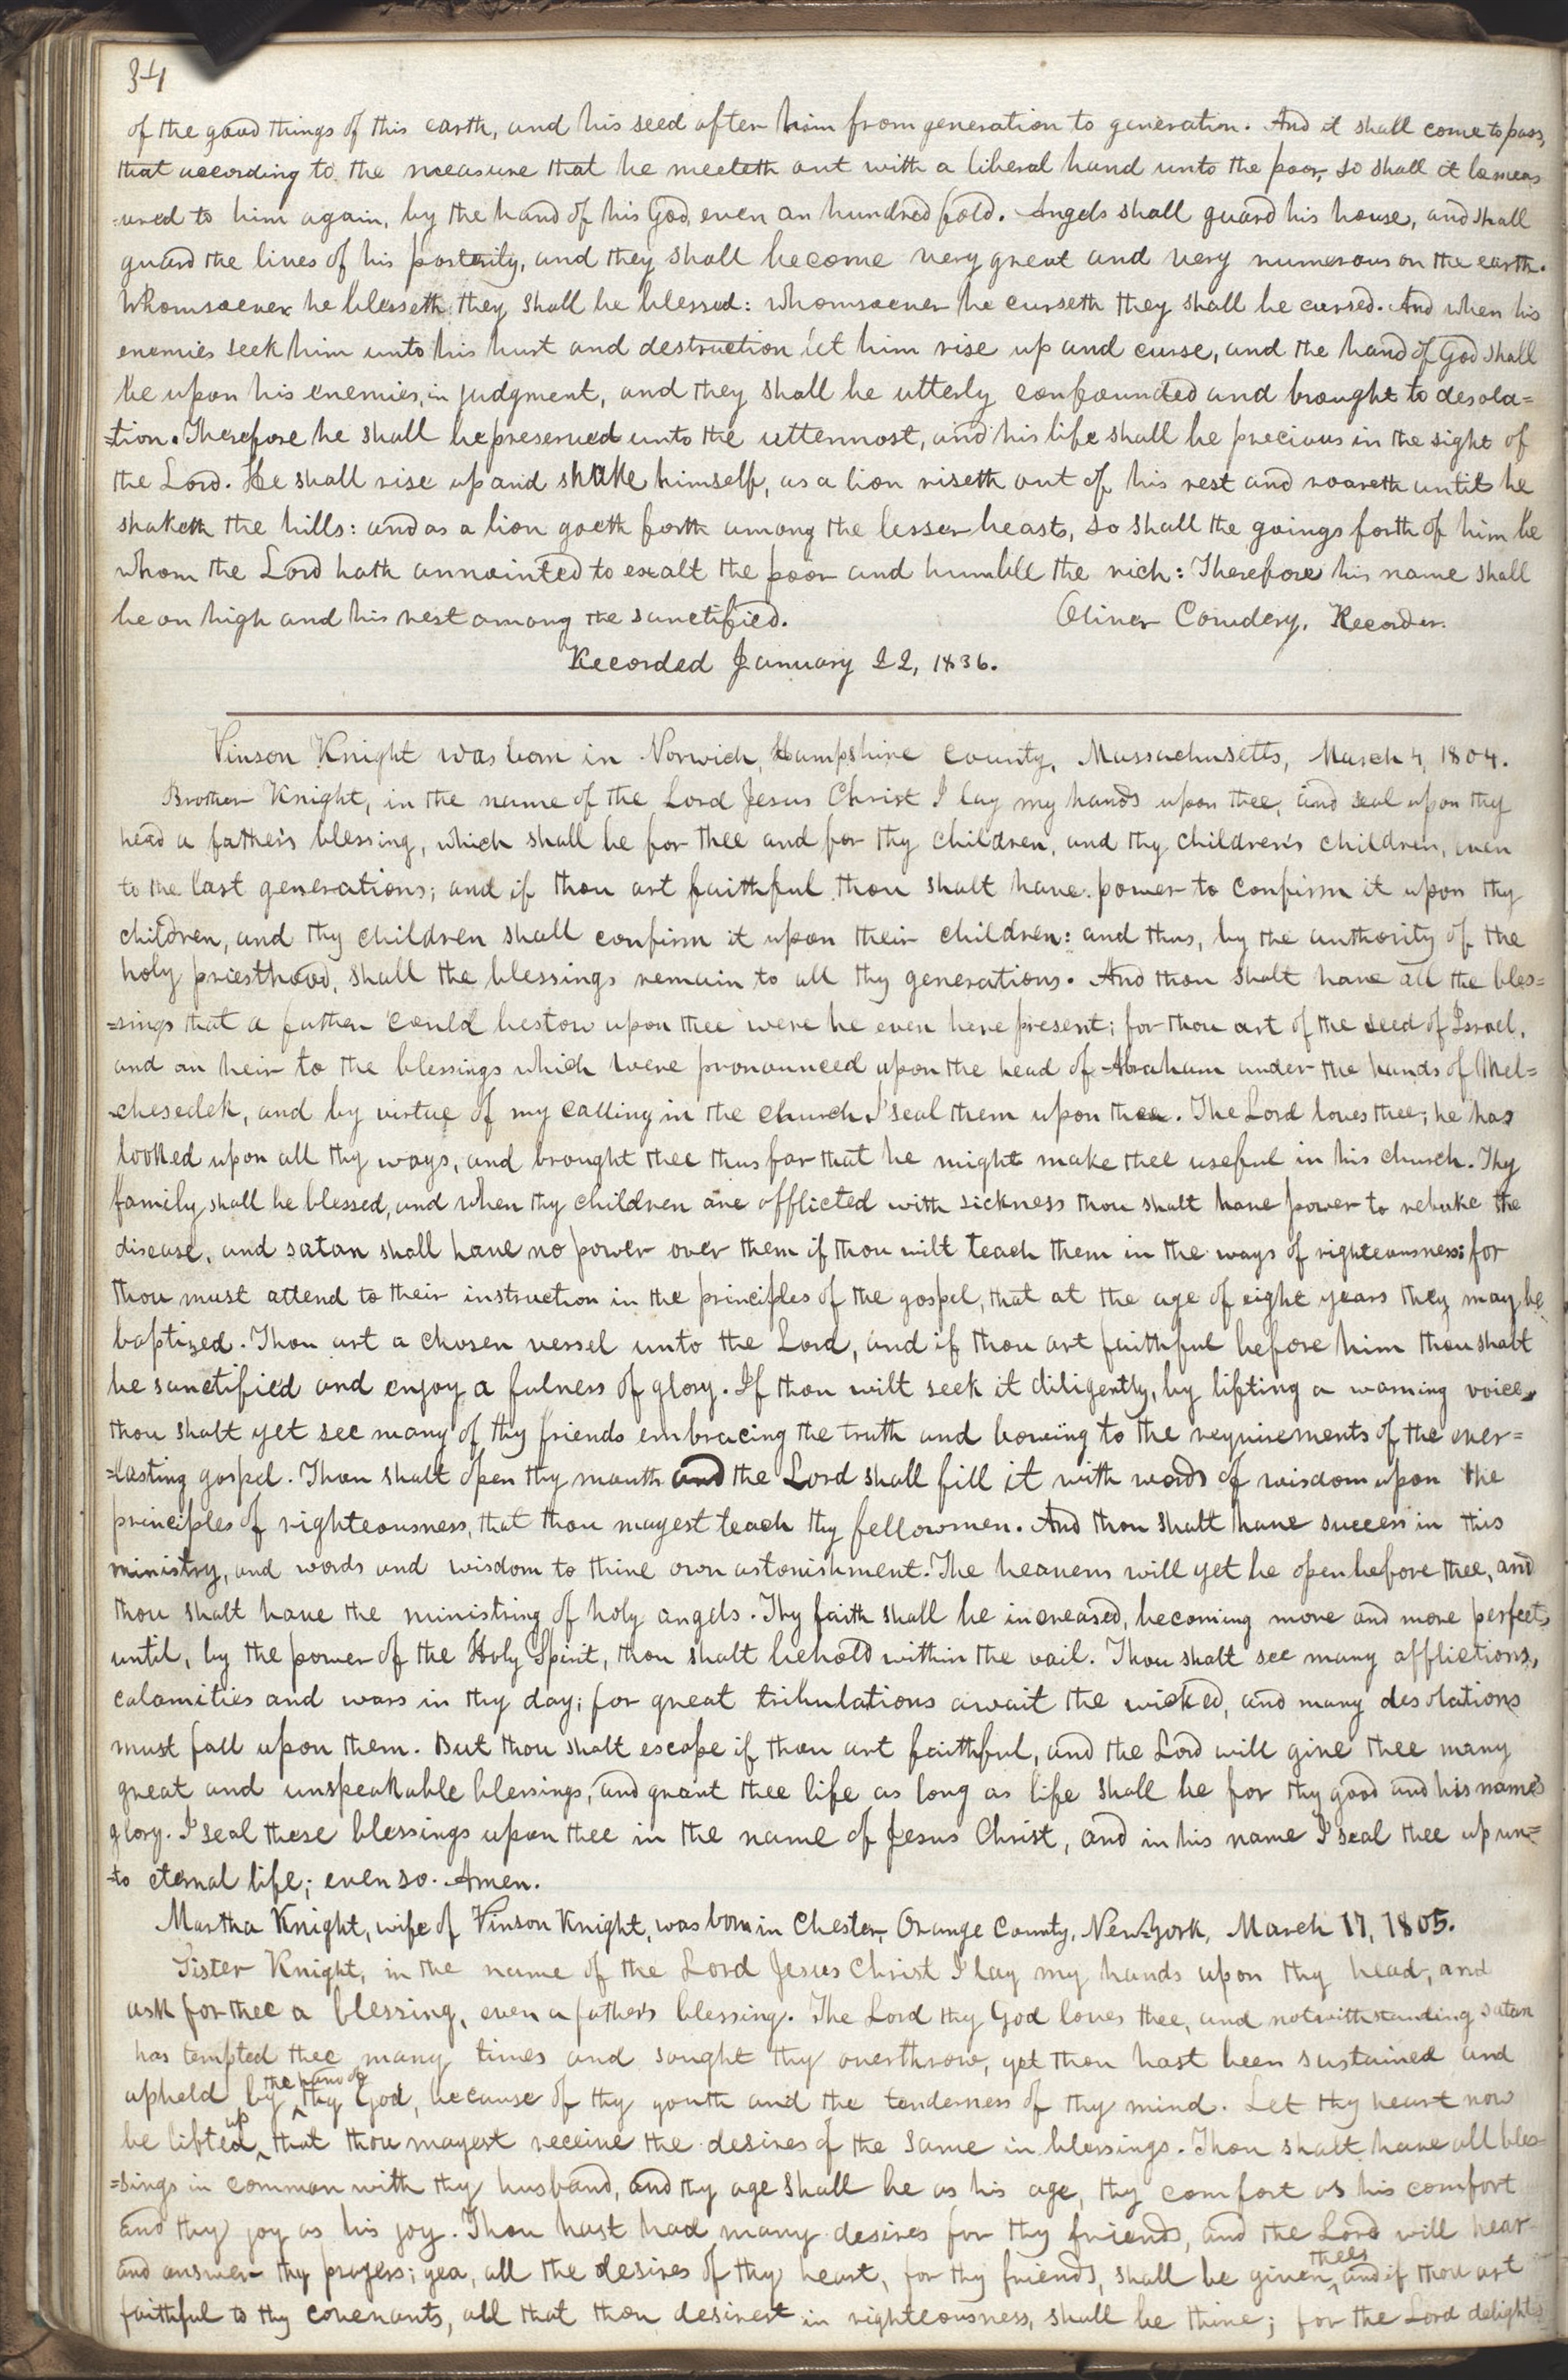 34
of the good things of this earth, and his seed after him from generation to generation. And it shall come to pass,
that according to the measure that he meeteth out with a liberal hand unto the poor, so shall it be meas
=ured to him again, by the hand of his God, even an hundred fold. Angels shall guard his house, and shall
guard the lives of his posterity, and they shall become very great and very numerous on the earth.
Whomsoever he blesseth they shall be blessed: whomsoever he curseth they shall be cursed. And when his
enemies seek him unto his hurt and destruction let him rise up and curse, and the hand of God shall
be upon his enemies, in judgment, and they shall be utterly confounded and brought to desola=
=tion. Therefore he shall be preserved unto the uttermost, and his life shall be precious in the sight of
the Lord. He shall rise up and shake himself, as a lion riseth out of his nest and roareth until he
shaketh the hills: and as a lion goeth forth among the lesser beasts, so shall the goings forth of him be
whom the Lord hath annointed to exalt the poor and humble the rich: Therefore his name shall
be on high and his rest among the sanctified. Oliver Cowdery, Recorder.
Recorded January 22, 1836.
Vinson Knight was born in Norwich, Hampshire County, Massachusetts, March 4, 1804.
Brother Knight, in the name of the Lord Jesus Christ I lay my hands upon thee, and seal upon thy
head a father's blessing, which shall be for thee and for thy children, and thy children's children, even
to the last generations; and if thou art faithful thou shalt have power to confirm it upon thy
children, and thy children shall confirm it upon their children: and thus, by the authority of the
holy priesthood, shall the blessings remain to all thy generations. And thou shalt have all the bles=
=sings that a father could bestow upon thee were he even here present; for thou art of the seed of Israel,
and an heir to the blessings which were pronounced upon the head of Abraham under the hands of Mel=
=chesedek, and by virtue of my calling in the church I seal them upon thee. The Lord loves thee; he has
looked upon all thy ways, and brought thee thus far that he might make thee useful in his church. Thy
family shall be blessed, and when thy children are afflicted with sickness thou shalt have power to rebuke the
disease, and satan shall have no power over them if thou wilt teach them in the ways of righteousness: for
thou must attend to their instruction in the principles of the gospel, that at the age of eight years they may be
baptized. Thou art a chosen vessel unto the Lord, and if thou art faithful before him thou shalt
be sanctified and enjoy a fulness of glory. If thou wilt seek it diligently, by lifting a warning voice,
thou shalt yet see many of thy friends embracing the truth and bowing to the requirements of the ever=
=lasting gospel. Thou shalt open thy mouth and the Lord shall fill it with words of wisdom upon the
principles of righteousness, that thou mayest teach thy fellowmen. And thou shalt have success in this
ministry, and words and wisdom to thine own astonishment. The heavens will yet be open before thee, and
thou shalt have the ministring of holy angels. Thy faith shall be increased, becoming more and more perfect,
until, by the power of the Holy Spirit, thou shalt behold within the vail. Thou shalt see many afflictions,
calamities and wars in thy day; for great tribulations await the wicked, and many desolations
must fall upon them. But thou shalt escape if thou art faithful, and the Lord will give thee many
great and unspeakable blessings, and grant thee life as long as life shall be for thy good and his name's
glory. I seal these blessings upon thee in the name of Jesus Christ, and in his name I seal thee up un=
=to eternal life; even so. Amen.
Martha Knight, wife of Vinson Knight, was born in Chester, Orange County, New-York, March 17, 1805.
Sister Knight, in the name of the Lord Jesus Christ I lay my hands upon thy head, and
ask for thee a blessing, even a father's blessing. The Lord thy God loves thee, and notwithstanding satan
has tempted thee many times and sought thy overthrow, yet thou hast been sustained and
upheld by the hand of thy God, because of thy youth and the tenderness of thy mind. Let thy heart now
be lifted up that thou mayest receive the desires of the same in blessings. Thou shalt have all bles
=sings in common with thy husband, and thy age shall be as his age, thy comfort as his comfort
and thy joy as his joy. Thou hast had many desires for thy friends, and the Lord will hear
and answer thy prayers; yea, all the desires of thy heart, for thy friends, shall be given thee, and if thou art
faithful to thy covenants, all that thou desirest in righteousness, shall be thine; for the Lord delights